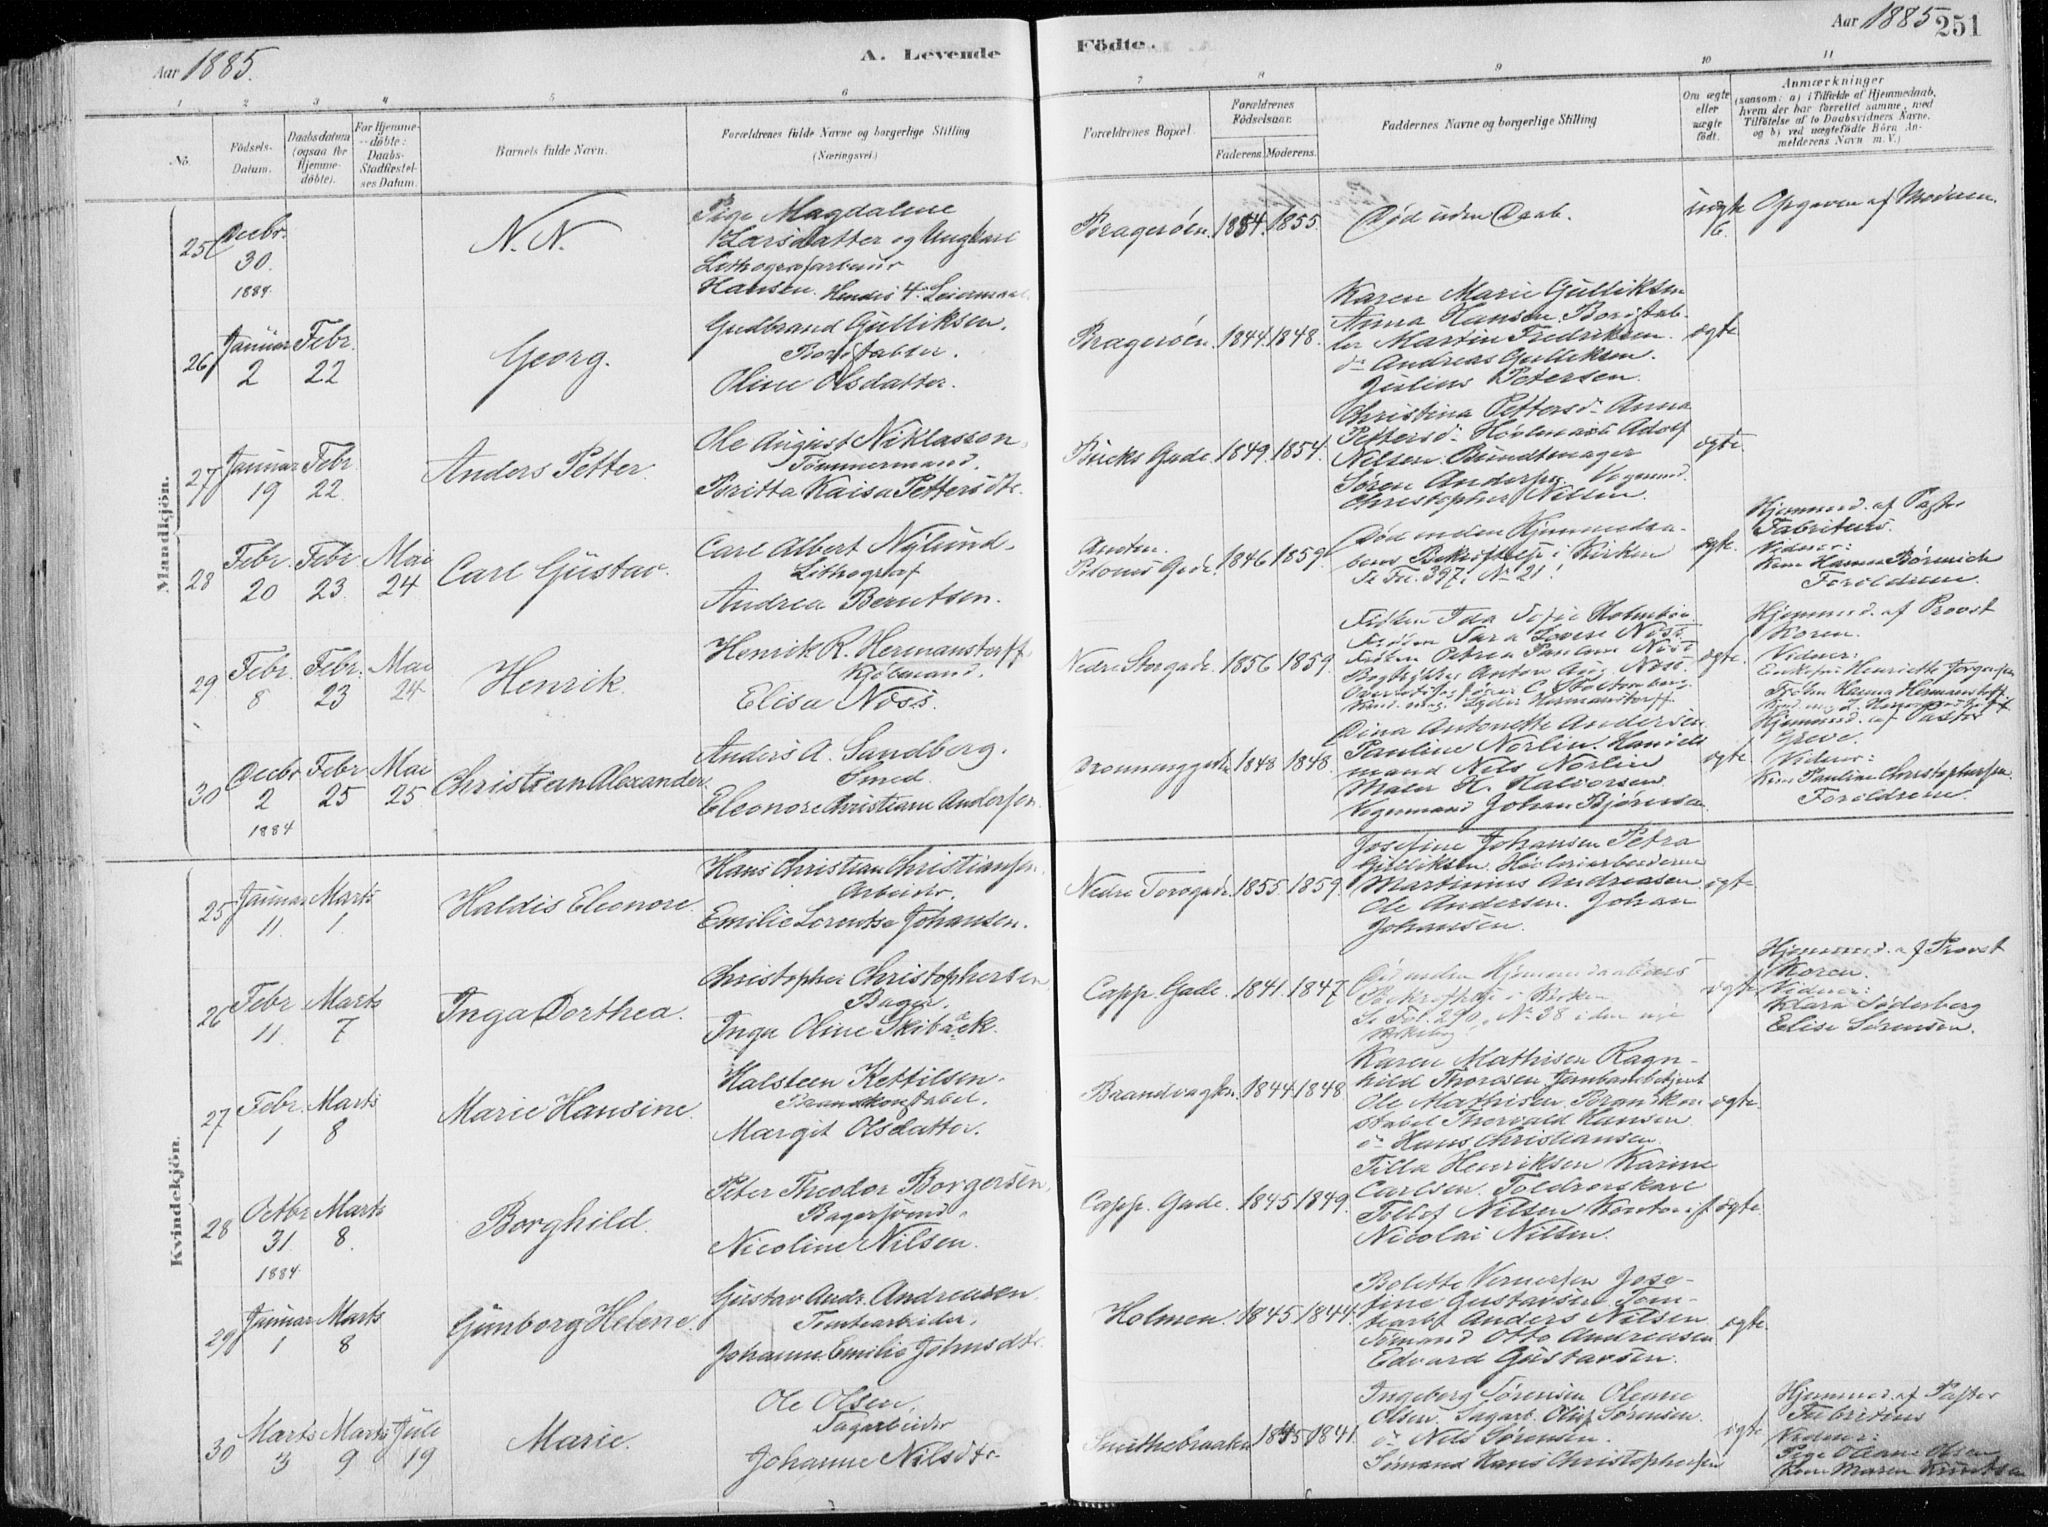 Aar 1885.
A. Levende
Födte.
Aar 1885
251
1 2 3 4 5 6 7 8 9 10 11
No.
Födsels-Datum.
Daabsdatum (ogsaa for Hjemme-döbte).
For Hjemme-döbte: Daabs-Stadfæstel-ses Datum.
Barnets fulde Navn.
Forældrenes fulde Navne og borgerlige Stilling (Næringsvei.)
Forældrenes Bopæl.
Forældrenes Födselsaar.
Faderens. Moderens.
Faddernes Navne og borgerlig Stilling
Om ægte eller uægte födt.
Anmærkninger
(saasom: a) i Tilfælde af Hjemmedaab,
hvem der har forrettet samme, med
Tilföielse af to Daabsvidners Navne,
og b) ved uægtefödte Börn An-
melderens Navn m. V.)
Mandkjön.
25 Decbr. 30. 1884.
N. N.
Pige Magdalene
Larsdatter og Ungkarl
Lithografarbeider
Hansen. Hendes 4. Leiermaal.
Bragerøen. 1854. 1855.
Død uden Daab.
uægte 6.
Opgaven af Moderen.
26 Januar 2 Febr. 22
Georg.
Gudbrand Gulliksen.
Oline Olsdatter.
Bragerøen. 1844. 1848.
Karen Marie Gulliksen
Anna Hansen.
Martin Fredriksen.
do Andreas Gulliksen.
Julius Petersen.
ægte
27 Januar 19 Febr. 22.
Anders Petter.
Ole August Niklasson.
Tømmermand.
Britta Kaisa Pettersdtr.
Bucks Gade. 1849. 1854.
Christina Pettersd. Anna
Pettersd. Adolf
Nilsen. Bundtmager
Søren Anders. Vognmd.
Christopher Nilsen.
ægte.
28 Febr. 20 Febr 23. Mai 24
Carl Gustav.
Carl Albert Nylund.
Lithograf
Andrea Berntsen.
Gade. 1846 1859.
Død inden Hjemmedaa-
bens Bekræftelse i Kirken
Se Fol. 397. No 21.
ægte.
Hjemmed. af Pastor
Fabritius.
Vidner:
Kone Hanna Børmich
Forældrene.
29 Febr. 8 Febr. 23 Mai 24
Henrik.
Henrik R. Hermanstorff
Kjøbmand.
Elisa Nøss.
Nedre Storgade. 1856 1859.
Frøken Ida Sofie Holmboe
Frøken Sara Lovise Nøss
Frøken Petrea Pauline Nøss
Anton Aug. Nøss.
Lyder Hermanstorff
ægte.
Hjemmed. af Provst
Koren.
Vidner:
Henriette Jørgensen
Frøken Hanna Hermanstorff
30 Decbr 2 1884 Febr 25 Mai 25
Christian Alexander.
Anders A. Sandberg.
Smed.
Eleonore Christiane Andersen.
Dronninggade 1848 1848.
Dina Antonette Andersen
Pauline Norlin. Handels
mand Nils Norlin
Maler H. Halvorsen
Vognmand Johan Bjørnsen
ægte
Hjemmed. af Pastor
Greve.
Vidner:
Kone Pauline Christophersen
Forældrene.
Kvindekjön.
25 Januar 11. Marts 1.
Haldis Eleonore.
Hans Christian Christiansen.
Arbeider.
Emilie Lorentse Johansen.
Nedre Torvgade. 1855. 1859.
Josefine Johansen Petra
Gulliksen. Høvleriarbeiderne
Martinius Andreasen
Ole Andersen. Johan
Johansen.
ægte.
26 Febr 11. Marts 7
Inga Dorthea.
Christopher Christophersen
Bager.
Inga Oline Skibæck.
Capp. Gade. 1841. 1847
Død inden Hjemmedaabens
Bekræftelse i Kirken
Se Fol. 290. No 38 i den nye
ægte
Hjemmed. af Provst
Koren.
Vidner:
Klara Söderberg
Elise Sørensen.
27 Febr. 1 Marts 8
Marie Hansine.
Halsteen Kettilsen.
Brandkonstabel.
Margit Olsdatter.
Brandvagten. 1844 1848
Karen Mathisen Ragn-
hild Thoresen Jernbanebetjent
Ole Mathisen. Brankon
stabel Thorvald Hansen
do Hans Christiansen.
ægte.
28 Octbr 31. 1884 Marts 8.
Borghild.
Peter Theodor Borgersen,
Bagersvend.
Nicoline Nilsen.
Capp. Gade. 1845 1849.
Tilla Henriksen Karine
Carlsen. Toldrorskarl
Tollef Nilsen Kontorist
Nicolai Nilsen.
ægte.
29 Januar 1 Marts 8
Gunborg Helene.
Gustav Andr. Andreasen.
Tomtearbeider.
Johanne Emilie Johnsdtr.
Holmen. 1845 1844.
Bolette Vernersen Jose-
fine Gustavsen. Tom-
tearb. Anders Nilsen
Sømand Otto Andreasen
Edvard Gustavsen.
ægte.
30 Marts 3 Marts 9 Juli 19
Marie.
Ole Olsen.
Sagarbeider
Johanne Nilsdtr.
Smithebraaten 1841
Ingeborg Sørensen Oleane
Olsen. Sagarb. Olaf Sørensen.
do Nils Sørensen.
Sømand Hans Christophersen
ægte.
Hjemmed. af Pastor
Fabritius
Vidner:
Pige Oleane Olsen
Kone Maren Knutsen